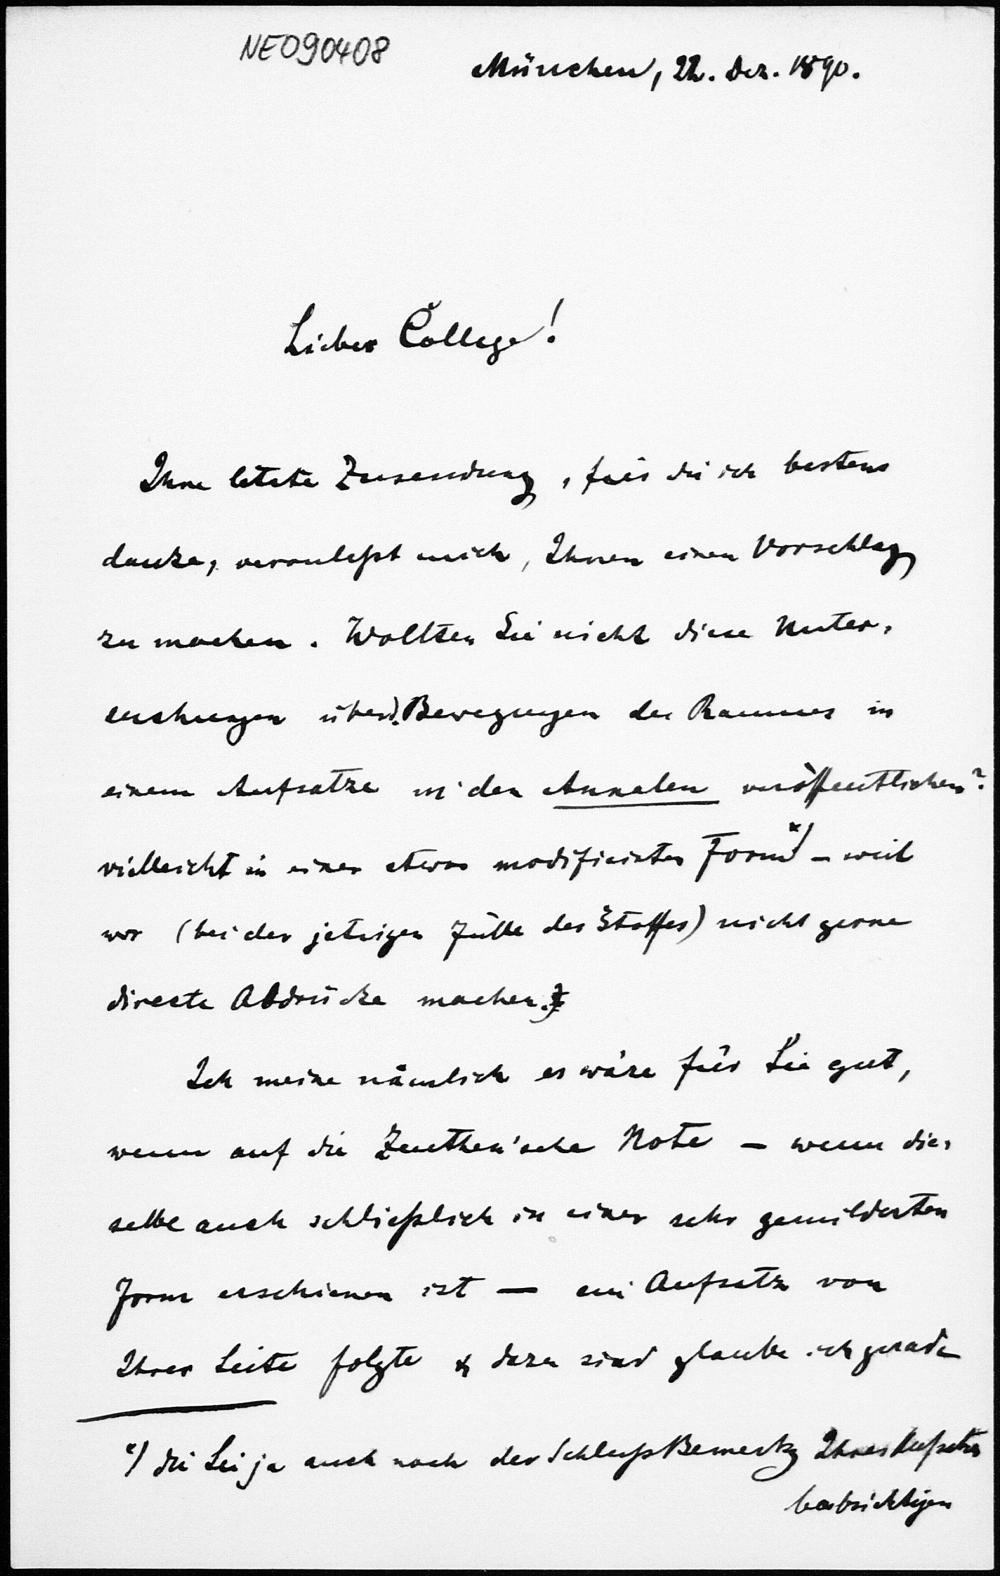 NE090408
München, 22. Dez. 1890.
Lieber College!
Ihre letzte Zusendung, für die ich bestens
danke, veranlaßt mich, Ihnen einen Vorschlag
zu machen. Wollten Sie nicht diese Unter-
suchungen über d. Bewegungen des Raumes in
einem Aufsatze in den Annalen veröffentlichen?
vielleicht in einer etwas modificirten Form*) – weil
wir (bei der jetzigen Fülle des Stoffes) nicht gerne
directe Abdrücke machen.
Ich meine nämlich es wäre für Sie gut,
wenn auf die Zeuthen'sche Note – wenn die-
selbe auch schließlich in einer sehr gemilderten
Form erschienen ist – ein Aufsatz von
Ihrer Seite folgte & dazu sind glaube ich gerade
*) die Sie ja auch nach der Schlußbemerkg Ihres Aufsatzes
beabsichtigen